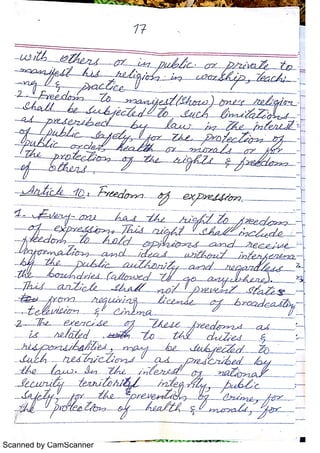 17
with others or in public or private to
manifest his religion in worship, teachi-
ng & practice
2. Freedom to manifest (show) one's religion
shall be subjected to such limitations
as prescribed by law in the interest
of public safety, for the protection of
public order, health or morals or for
the protection of the rights & freedom
of others.
Article 10: Freedom of expression.
1. Every-one has the right to freedom
of expression. This right shall include
freedom to hold opinions and receive
information and ideas without interference
by the public authority and regardless
the boundries (allowed to go anywhere).
This article shall not prevent states
from requiring license of broadcasting
television & cinema.
2. The exercise of these freedoms as
is related to the duties &
responsibilities, may be subjected to
such restrictions as prescribed by
the law. In the interest of national
security territorial integrity, public
safety, for the prevention of crime, for
the protection of health & morals, for
Scanned by CamScanner